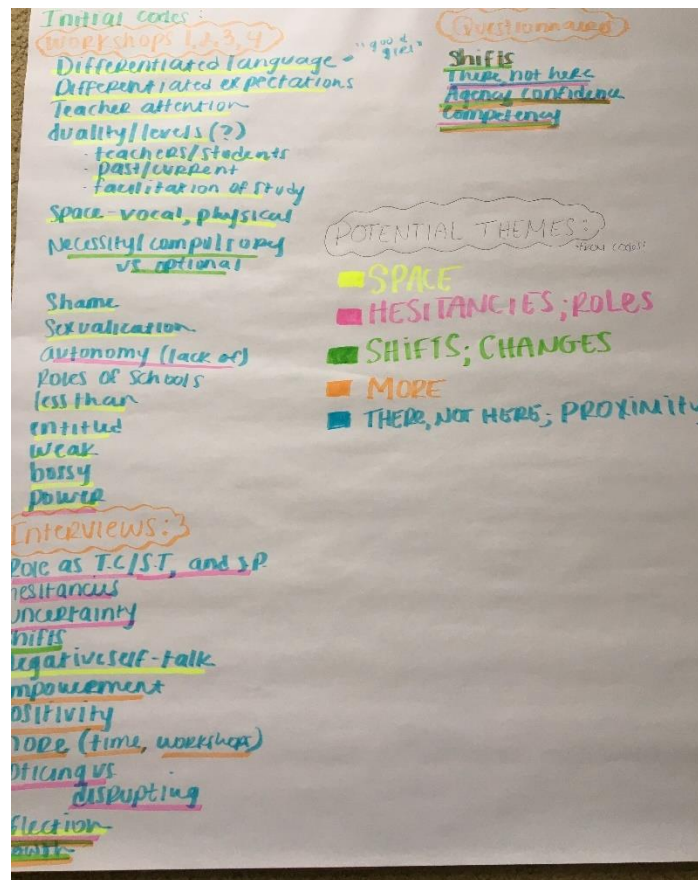 Initial codes:
Workshops 1,2,3,4
Differentiated language - "good girl"
Differentiated expectations
Teacher attention
duality/levels (?)
- teachers/students
- past/current
- facilitation of study
Space-vocal, physical
Necessity/compulsory
vs optional
Shame
Sexualication
autonomy (lack of)
Roles of Schools
less than
entitled
weak
bossy
power
Interviews: 3
Role as T.C/S.T, and S.P.
hesitancies
uncertainty
hifts
egative self-talk
mpowerment
ositivity
more (time, workshop)
oticing vs
disrupting
flection
Questionnaires
Shifts
There not here
Agency confidence
competency
POTENTIAL THEMES:
from codes:
SPACE
HESITANCIES; ROLES
SHIFTS; CHANGES
MORE
THERE, NOT HERE; PROXIMITY